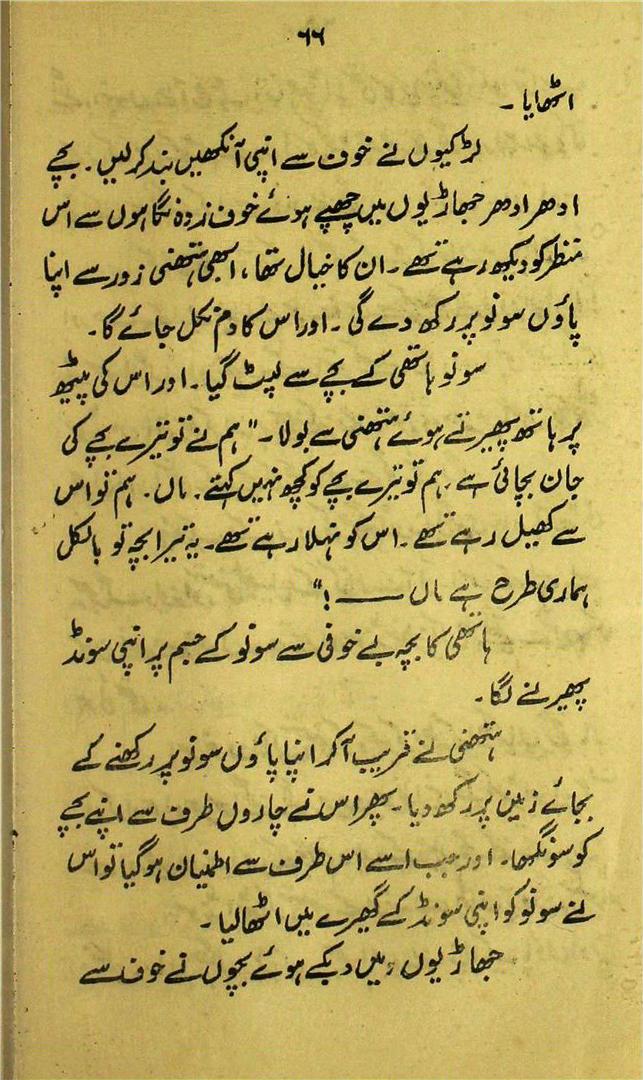 ۶۶
اٹھایا۔
لڑکیوں نے خوف سے اپنی آنکھیں بند کر لیں۔ بچے
ادھر ادھر جھاڑیوں میں چھپے ہوئے خوف زدہ نگاہوں سے اس
منظر کو دیکھ رہے تھے۔ ان کا خیال تھا، ابھی ہتھنی زور سے اپنا
پاؤں سونو پر رکھ دے گی۔ اور اس کا دم نکل جائے گا۔
سونو ہاتھی کے بچے سے لپٹ گیا۔ اور اس کی پیٹھ
پر ہاتھ پھیرتے ہوئے ہتھنی سے بولا۔ "ہم نے تو تیرے بچے کی
جان بچائی ہے۔ ہم تو تیرے بچے کو کچھ نہیں کہتے۔ ماں۔ ہم تو اس
سے کھیل رہے تھے۔ اس کو نہلا رہے تھے۔ یہ تیرا بچہ تو بالکل
ہماری طرح ہے ماں —— !"
ہاتھی کا بچہ بے خوفی سے سونو کے جسم پر اپنی سونڈ
پھیرنے لگا۔
ہتھنی نے قریب آ کر اپنا پاؤں سونو پر رکھنے کے
بجائے زمین پر رکھ دیا۔ پھر اس نے چاروں طرف سے اپنے بچے
کو سونگھا۔ اور جب اسے اس طرف سے اطمنیان ہو گیا تو اس
نے سونو کو اپنی سونڈ کے گھیرے میں اٹھا لیا۔
جھاڑیوں میں دبکے ہوئے بچوں نے خوف سے